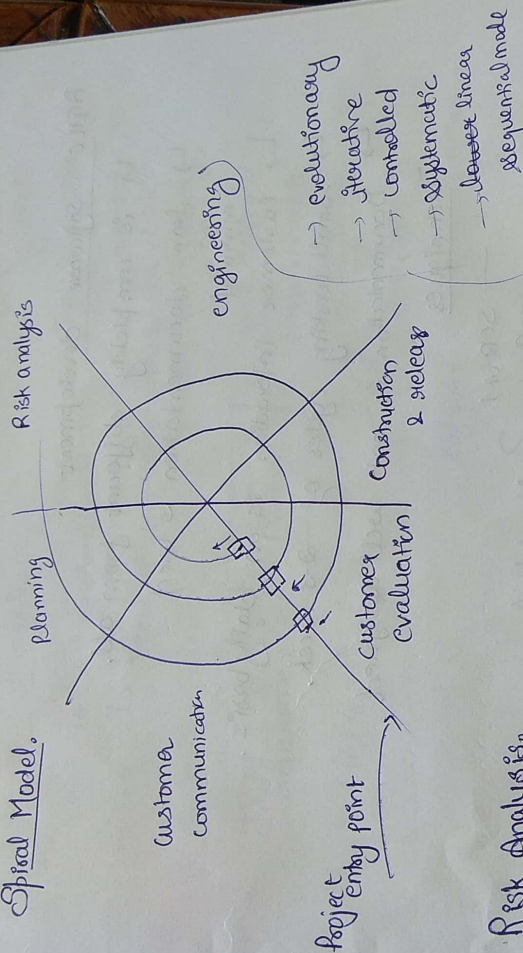 Spiral Model.
Planning
Risk analysis
customer
communication
engineering
Project
entry point
customer
evaluation
Construction
& releas
→ evolutionary
→ iterative
→ controlled
→ systematic
→ linear
sequential mode
Risk Analysis.